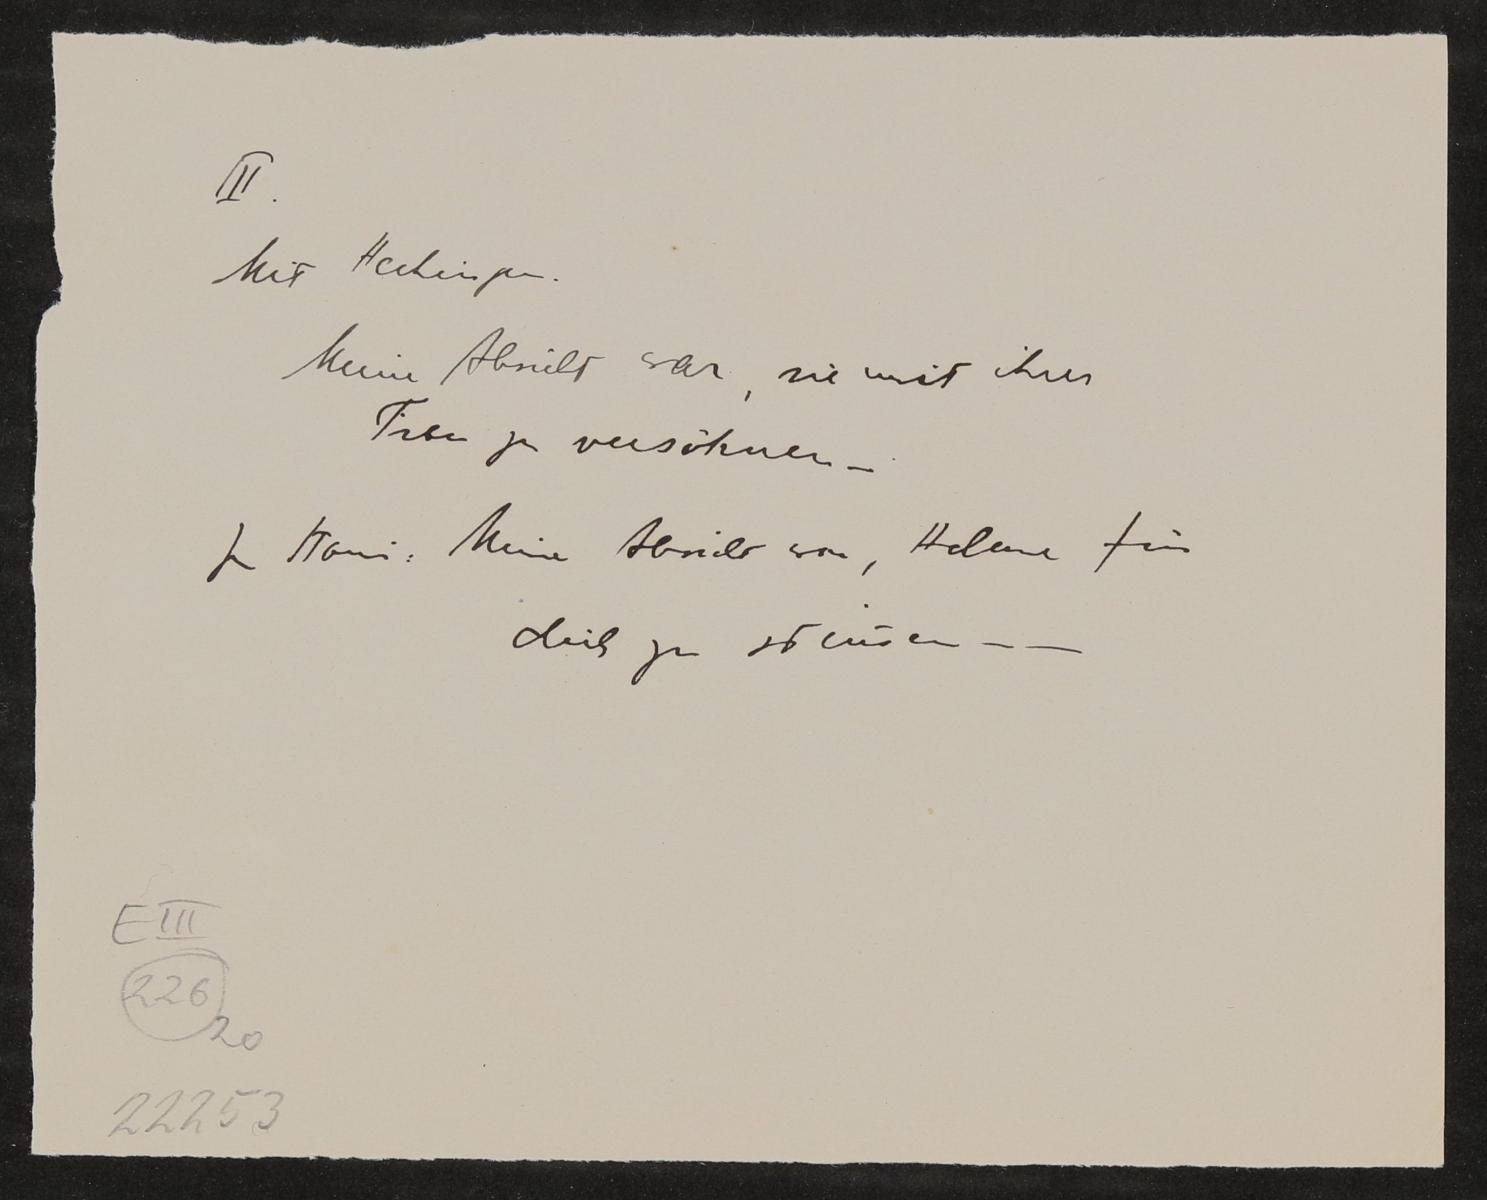 II.
Mit Hechingen.
Meine Absicht war, sie mit ihrer
Frau zu versöhnen _
Zu Stani: Meine Absicht war, Helene für
dich zu stim̄en _ _
E III
226
20
22253